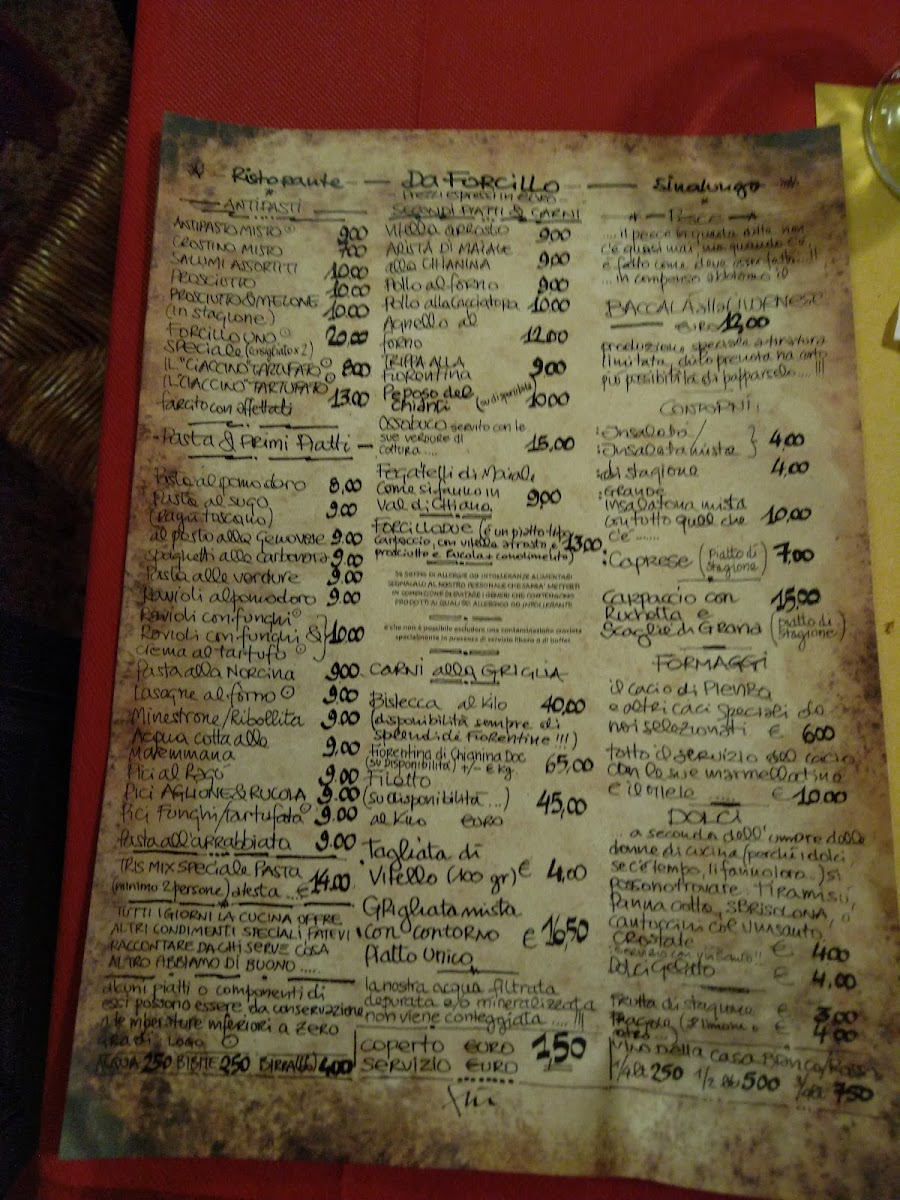 Ristorante — Da Forcillo — Sinalunga
ANTIPASTI
ANTIPASTO MISTO 9,00
CROSTINO MISTO 7,00
SALUMI ASSORTITI 10,00
PROSCIUTTO 10.00
PROSCIUTTO & MELONE
(in stagione) 10.00
FORCILLO UNO 20.00
SPECIALE (consigliato x 2)
IL "CIACCINO" TARTUFATO 8,00
IL "CIACCINO" TARTUFATO
farcito con affettati 13.00
Pasta & Primi Piatti
Pasta al pomodoro 8,00
Pasta al sugo
(ragù toscano) 9.00
al pasto alla Genovese 9.00
spaghetti alla carbonara 9.00
Pasta alle verdure 9.00
Ravioli al pomodoro 9.00
Ravioli con funghi
Ravioli con funghi & } 10.00
crema al tartufo
Pasta alla NORCINA 9.00
Lasagne al forno 9.00
Minestrone/Ribollita 9.00
Acqua cotta alla
Maremmana 9.00
Pici al Ragù 9.00
Pici AGLIONE & RUCOLA 9.00
Pici Funghi/tartufata 9.00
Pasta all'arrabbiata 9.00
TRIS MIX SPECIALE PASTA
(minimo 2 persone) a testa ... € 14.00
TUTTI I GIORNI LA CUCINA OFFRE
ALTRI CONDIMENTI SPECIALI FATEVI
RACCONTARE DA CHI SERVE COSA
ALTRO ABBIAMO DI BUONO .....
alcuni piatti o componenti di
essi possono essere da conservazione
a temperature inferiori a zero
gradi
ACQUA 2,50 BIBITE 2,50 BIRRA 4,00
Prezzi espressi in euro
SECONDI PIATTI & CARNI
Vitella arrosto 9,00
ARISTA DI MAIALE
alla CHIANINA 9,00
Pollo al forno 9,00
Pollo alla cacciatora 10.00
Agnello al
forno 12.00
TRIPPA ALLA
Fiorentina 9,00
Peposo del
Chianti (su disponibilità) 10,00
Ossobuco servito con le
sue verdure di
cottura.... 15,00
Fegatelli di Maiale
come si fanno in
Val di Chiana 9,00
FORCILLO DUE (è un piatto tipo
carpaccio, con vitella arrosto e 13.00
prosciutto e Rucola e condimento)
SE SIETE DI ALLERGIE OD INTOLLERANZE ALIMENTARI
SEGNALATELO AL NOSTRO PERSONALE CHE SARA' METTERVI
IN CONDIZIONE DI EVITARE I GENERI CHE CONTENGONO
PRODOTTI AI QUALI SIETE ALLERGICI OD INTOLLERANTE
e che non è possibile escludere una contaminazione crociata
specialmente in presenza di servizio libero o di buffet
CARNI alla GRIGLIA
Bistecca al Kilo 40,00
(disponibilità sempre di
splendide Fiorentine !!!)
Fiorentina di Chianina Doc
(su disponibilità) +/- € kg. 65,00
Filetto
(su disponibilità ...) 45,00
al Kilo EURO
tagliata di
Vitello (100 gr) € 4,00
GRIGliata mista
con contorno € 16,50
Piatto Unico
la nostra acqua filtrata
depurata e/o mineralizzata
non viene conteggiata ....!!!
coperto EURO 1,50
servizio EURO
Pesce
....il pesce in questa zona non
c'è quasi mai, ma quando c'è
è fatto come deve esser fatto...!!
... in compenso abbiamo il
BACCALÀ alla LIVORNESE
EURO 12,00
produzione speciale a tiratura
limitata, chi lo prenota ha certo
più possibilità di papparselo....!!!
CONTORNI:
Insalata/
Insalata mista } 4,00
di stagione 4,00
Grande
insalatona mista
con tutto quel che 10,00
c'è .......
Caprese (piatto di Stagione) 7,00
Carpaccio con
Ruchetta e 15,00
Scaglie di Grana (piatto di Stagione)
FORMAGGI
il cacio di PIENZA
e altri caci speciali da
noi selezionati € 6,00
tutto il servizio del cacio
con le sue marmellatine
e il miele ..... € 10.00
DOLCI
...a seconda dell'umore delle
donne di cucina (perchè i dolci,
se c'è tempo, li fanno loro..) si
possono trovare: TIRAMISÙ,
Panna cotta, SBRISOLONA, o
cantuccini col Vinsanto,
Crostate € 4,00
Dolci gelato € 4,00
Frutta di stagione € 3,00
Fragole (& limone o € 4,00
altro...)
Vino della Casa Bianco/Rosso
1/4 lt 2,50 1/2 lt 5,00 3/4 lt 7,50